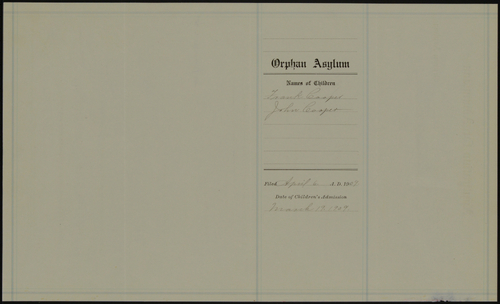 Orphan Asylum
Names of Children
Frank Cooper
John Cooper
Filed April 6 A. D. 1909
Date of Children's Admission
March 19, 1909